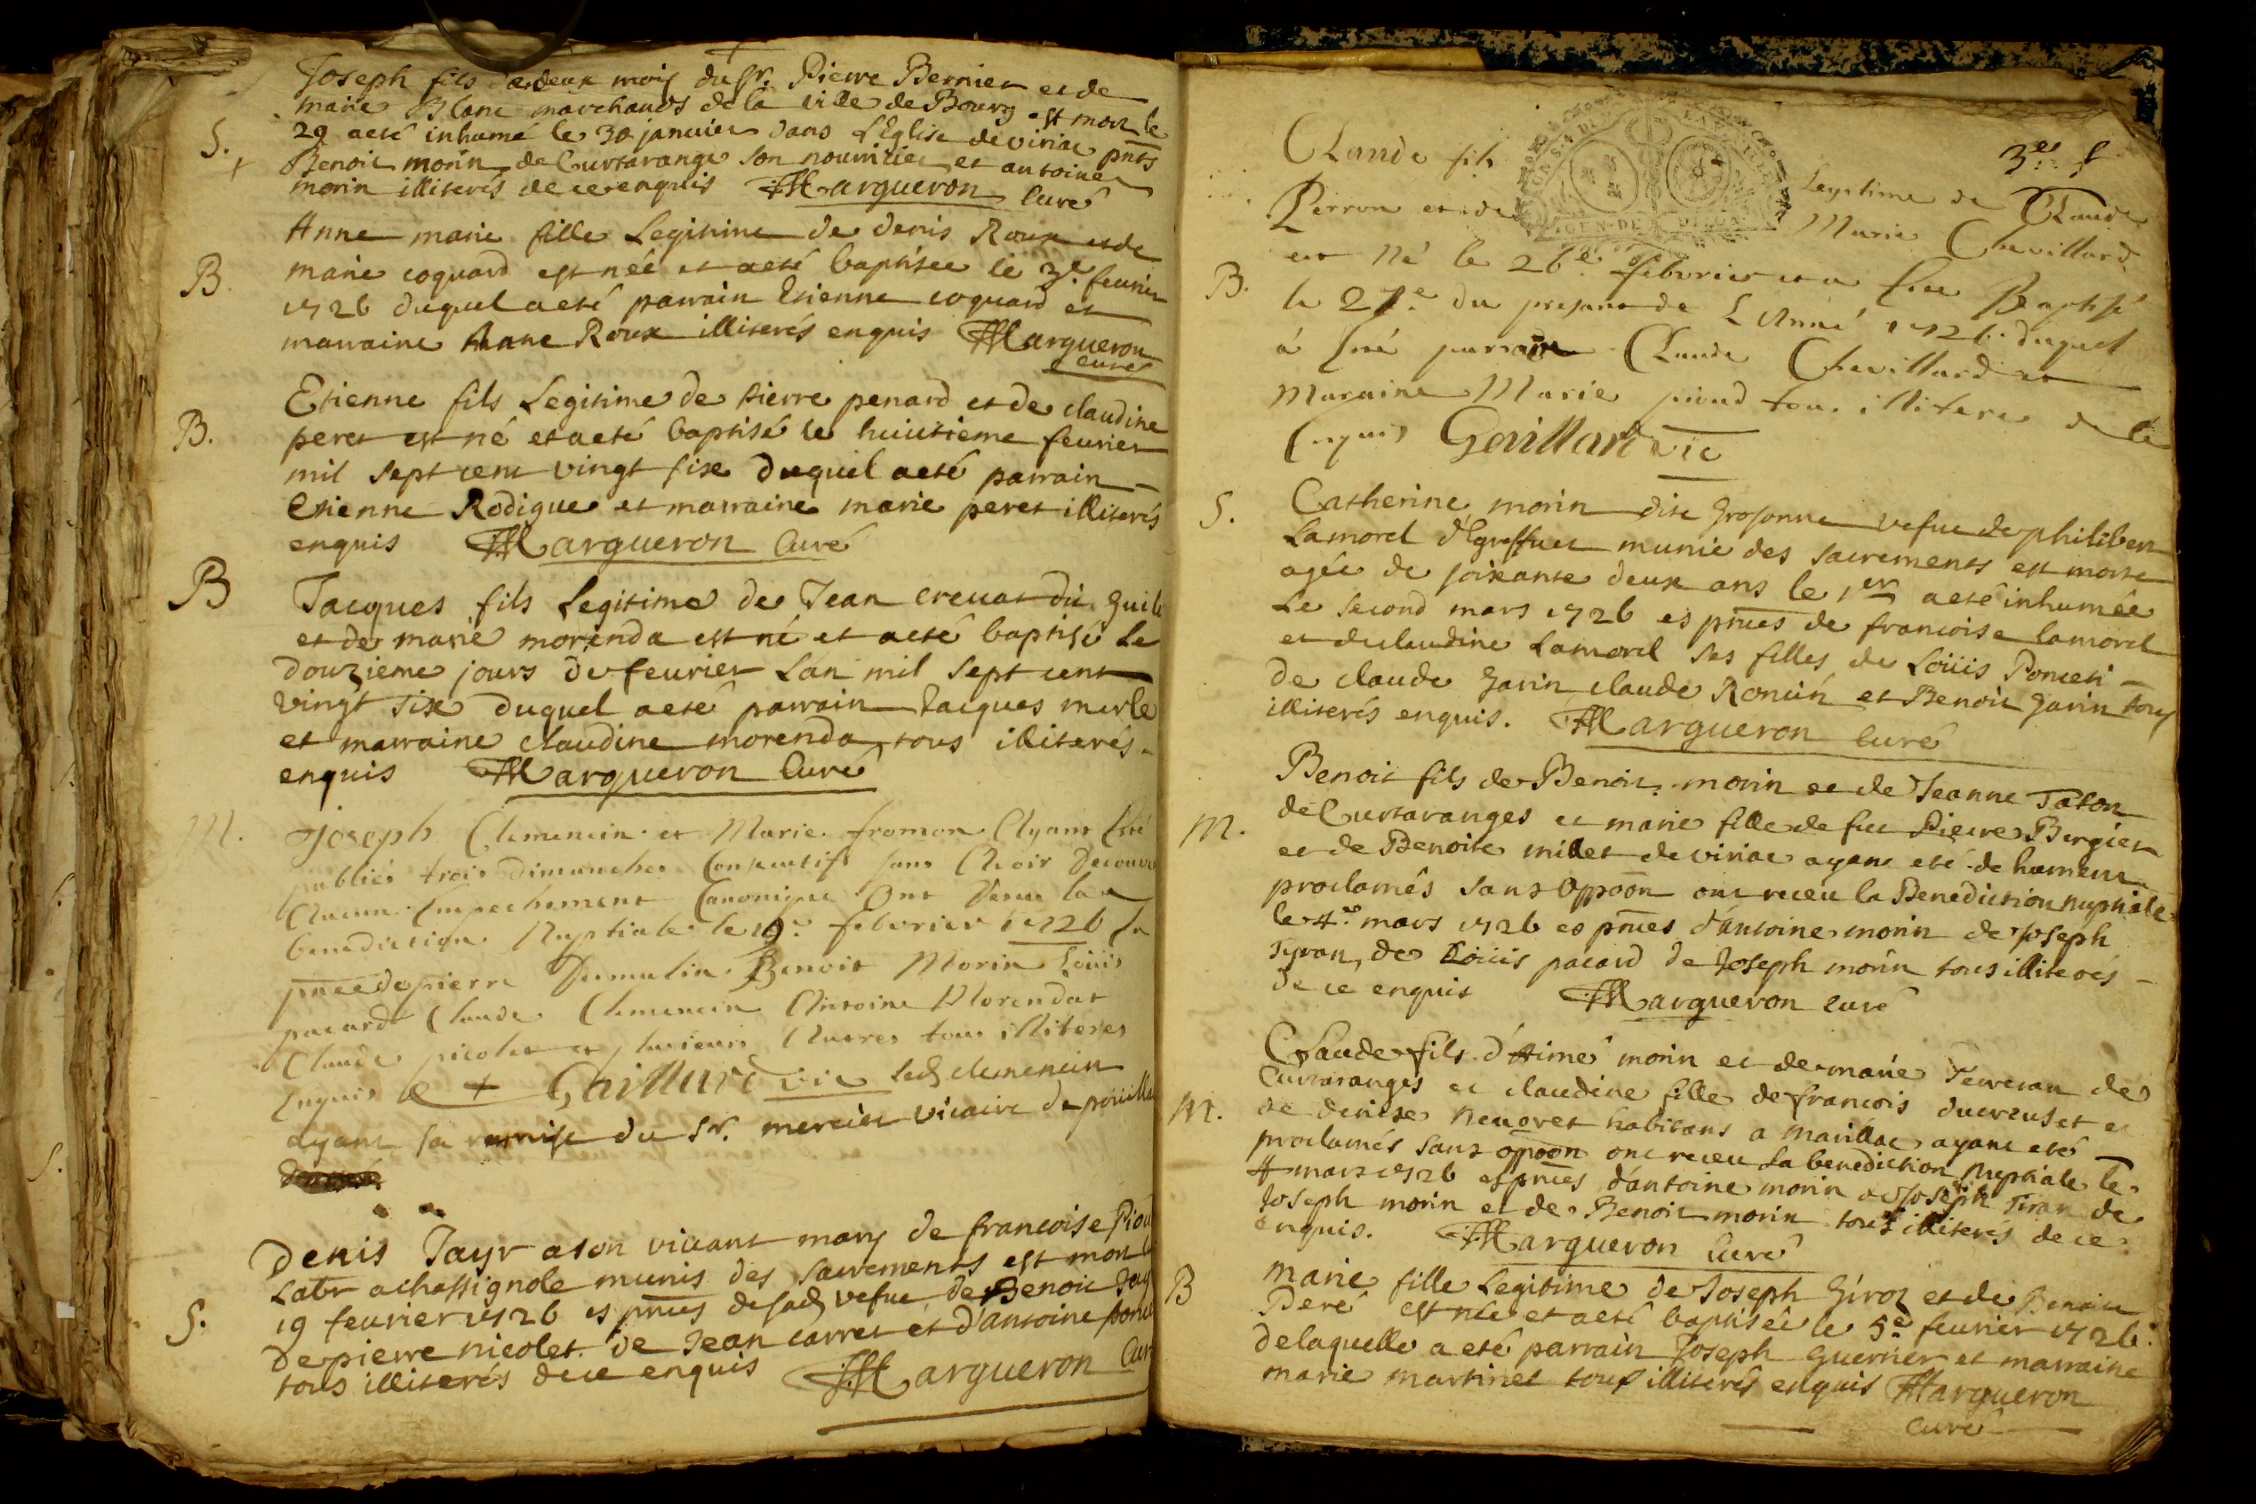 Joseph fils de deux mois du Sr. Pierre Bernier et de
marie Blanc marchands de la ville de Bourg est mort le
S.
29 aeté inhumé le 30 janvier dans L'Eglise de viriac pnts
Benoit morin de Curtarange son nourricier et antoine
morin illiterés de ce enquis Margueron Curé
Anne marie fille Legitime de denis Roux et de
B
marie coquard est née et aeté baptisée le 3e. fevrier
1726 duquel aeté parrain Etienne coquard et
marraine Roux illiterés enquis Margueron
curé
Etienne fils Legitime de pierre penard et de claudine
B.
peret est né et aeté baptisé le huictieme fevrier
mil sept cent vingt six duquel aeté parrain
Etienne Rodigue et marraine marie peret illiterés
enquis Margueron Curé
B
Jacques fils Legitime de Jean crevat dit
et de marie morenda est né et aeté baptisé Le
douzieme jours de fevrier Lan mil sept cent
vingt six duquel aeté parrain Jacques merle
et marraine claudine morenda tous illiterés
enquis Margueron Curé
M.
Joseph Clemencin et Marie fromon Ayant Esté
publiés trois dimanches Consecutifs sans Avoir
Aucun Empechement Canonique Ont la
benediction Nuptiale le 19e. febvrier 1726 En
pnce de pierre Dumulin Benoit Morin Loüis
pacard Claude Clemencin Antoine Morendat
Claude picolet et plusieurs Autres tous illiteres
Enquis Gaillard vic led clemencin
ayant sa remise du Sr. mercier vicaire de
Denis Jayr a son vivant mary de francoise
Labr a chassignole munis des sacrements est mort
S.
19 fevrier 1726 es pnces de sad vefue de Benoit
de pierre nicolet de Jean carret et d'antoine
tous illiterés de ce enquis Margueron Curé
3es f
Claude fils Legitime de Claude
Perron et de Marie Chevillard
B.
est Né le 26e. febvrier et a Esté Baptisé
le 27e. du present de L'Anné 1726. duquel
à Esté parrain Claude Chevillard et
Maraine Marie tous illiteres de ce
Enquis Gaillard vic
S.
Catherine morin dite Grosonne vefue de philibert
Lamorel munie des sacrements est morte
agée de soixante deux ans le 1er aeté inhumée
Le second mars 1726 es pnces de francoise lamorel
et de claudine Lamorel ses filles de Loüis Poncet
de claude Garin claude Roncin et Benoit Garin tous
illiterés enquis. Margueron Curé
M.
Benoit fils de Benoit morin et de Jeanne
de Curtaranges et marie fille de feu Pierre Bergier
et de Benoite millet de viriac ayant eté
proclamés sans Oppoon ont receu la Benediction nuptiale
le 4e mars 1726 es pnces d'antoine morin de Joseph
Tiran, de Loüis pacard de Joseph morin tous illiterés
de ce enquis Margueron curé
Claude fils d'Aimé morin et de marie de
Curtaranges et claudine fille de francois et
M.
de denise habitans a Marillac ayant eté
proclamés sans opoon ont receu La benediction Nuptiale le
4 mars 1726 es pnces d'antoine morin de Joseph Tiran de
Joseph morin et de Benoit morin tous illiterés de ce
enquis. Margueron Curé
B
Marie fille Legitime de Joseph Giroz et de Benoite
Peré est née et aeté baptisée le 5e fevrier 1726
de laquelle a eté parrain Joseph Guerrier et marraine
marie martinet tous illiterés enquis Margueron
curé